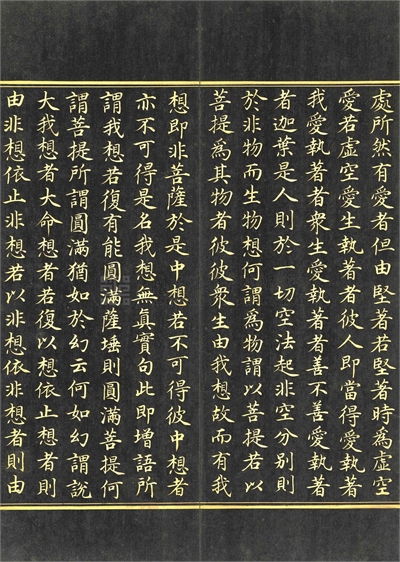 處所然有愛者但由堅著若堅著時為虛空
愛若虛空愛生執著者彼人即當得愛執著
我愛執著者衆生愛執著者善不善愛執著
者迦葉是人則於一切空法起非空分別則
於非物而生物想何謂為物謂以菩提若以
菩提為其物者彼彼衆生由我想故而有我
想即非菩薩於是中想若不可得彼中想者
亦不可得是名我想無真實句此即增語所
謂我想若復有能圓滿薩埵則圓滿菩提何
謂菩提所謂圓滿猶如於幻云何如幻謂說
大我想者大命想者若復以想依止想者則
由非想依止非想若以非想依非想者則由